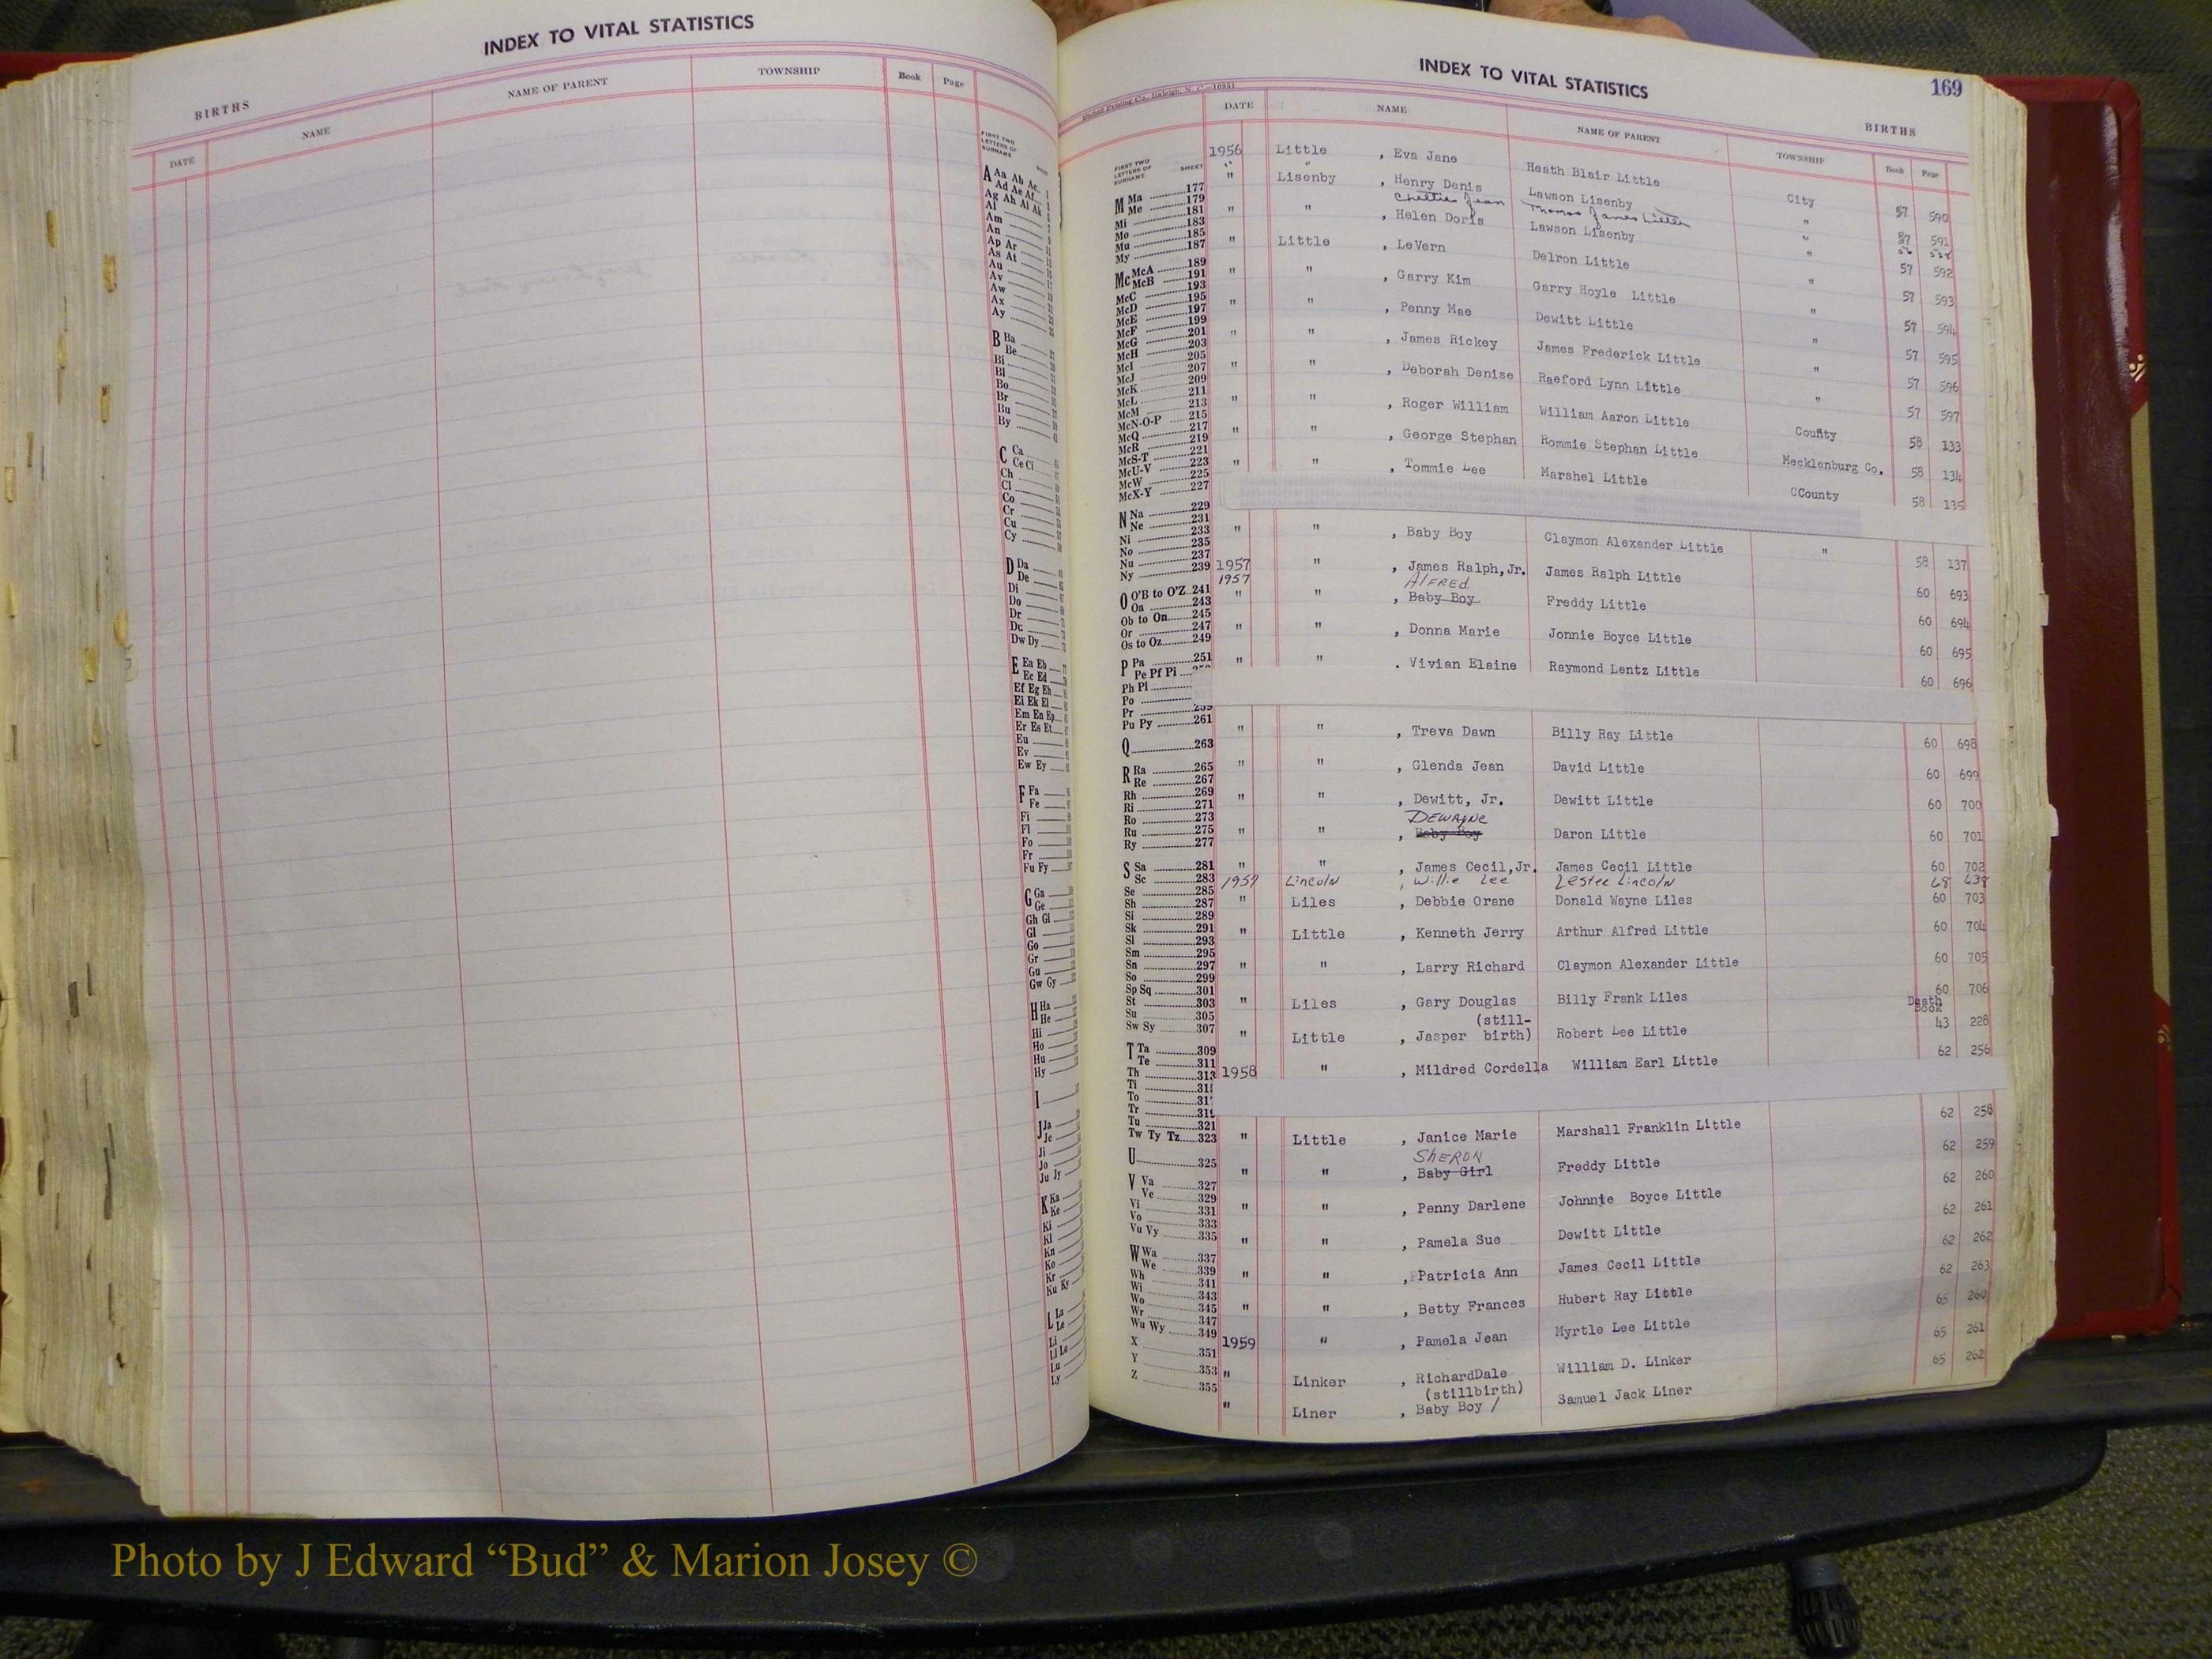 INDEX TO VITAL STATISTICS
BIRTHS
DATE NAME NAME OF PARENT TOWNSHIP Book Page
FIRST TWO LETTERS OF SURNAME
A Aa Ab Ac
Ad Ae Af
Ag Ah Ai Ak
Al
Am
An
Ap Ar
As At
Au
Av
Aw
Ax
Ay
B Ba
Be
Bi
Bl
Bo
Br
Bu
By
C Ca
Ce Ci
Ch
Cl
Co
Cr
Cu
Cy
D Da
De
Di
Do
Dr
Du
Dw Dy
E Ea Eb
Ec Ed
Ef Eg Eh
Ei Ek El
Em En Ep
Er Es Et
Eu
Ev
Ew Ey
F Fa
Fe
Fi
Fl
Fo
Fr
Fu Fy
G Ga
Ge
Gh Gl
Gl
Go
Gr
Gu
Gw Gy
H Ha
He
Hi
Ho
Hu
Hy
I
J Ja
Je
Ji
Jo
Ju Jy
K Ka
Ke
Ki
Kl
Kn
Ko
Kr
Ku Ky
L La
Le
Li
Ll Lo
Lu
Ly
INDEX TO VITAL STATISTICS 169
BIRTHS
DATE NAME NAME OF PARENT TOWNSHIP Book Page
FIRST TWO LETTERS OF SURNAME SHEET
M Ma 177
Me 179
Mi 181
Mo 183
Mu 185
My 187
Mc McA 189
McB 191
McC 193
McD 195
McE 197
McF 199
McG 201
McH 203
McI 205
McJ 207
McK 209
McL 211
McM 213
McN-O-P 215
McQ 217
McR 219
McS-T 221
McU-V 223
McW 225
McX-Y 227
N Na 229
Ne 231
Ni 233
No 235
Nu 237
Ny 239
O O'B to O'Z 241
Oa 243
Ob to On 245
Or 247
Os to Oz 249
P Pa 251
Pe Pf Pi
Ph Pl
Po
Pr 259
Pu Py 261
Q 263
R Ra 265
Re 267
Rh 269
Ri 271
Ro 273
Ru 275
Ry 277
S Sa 281
Sc 283
Se 285
Sh 287
Si 289
Sk 291
Sl 293
Sm 295
Sn 297
So 299
Sp Sq 301
St 303
Su 305
Sw Sy 307
T Ta 309
Te 311
Th 313
Ti
To
Tr
Tu 321
Tw Ty Tz 323
U 325
V Va 327
Ve 329
Vi 331
Vo 333
Vu Vy 335
W Wa 337
We 339
Wh 341
Wi 343
Wo 345
Wr 347
Wu Wy 349
X 351
Y 353
Z 355
1956 Little , Eva Jane Heath Blair Little City 57 590
" Lisenby , Henry Denis Lawson Lisenby " 57 591
Jean Thomas James Little
" " , Helen Doris Lawson Lisenby " 57 592
" Little , LeVern Delron Little " 57 593
" " , Garry Kim Garry Hoyle Little " 57 594
" " , Penny Mae Dewitt Little " 57 595
" " , James Rickey James Frederick Little " 57 596
" " , Deborah Denise Raeford Lynn Little " 57 597
" " , Roger William William Aaron Little County 58 133
" " , George Stephan Rommie Stephan Little Mecklenburg Co. 58 134
" " , Tommie Lee Marshel Little CCounty 58 135
" " , Baby Boy Claymon Alexander Little " 58 137
1957 " , James Ralph,Jr. James Ralph Little 60 693
1957 ALFRED
" " , Baby Boy Freddy Little 60 694
" " , Donna Marie Jonnie Boyce Little 60 695
" " . Vivian Elaine Raymond Lentz Little 60 696
" " , Treva Dawn Billy Ray Little 60 698
" " , Glenda Jean David Little 60 699
" " , Dewitt, Jr. Dewitt Little 60 700
DEWAyNe
" " , Baby Boy Daron Little 60 701
" " , James Cecil,Jr. James Cecil Little 60 702
1957 Lincoln , Willie Lee Lester Lincoln 68 638
" Liles , Debbie Orane Donald Wayne Liles 60 703
" Little , Kenneth Jerry Arthur Alfred Little 60 704
" " , Larry Richard Claymon Alexander Little 60 705
" Liles , Gary Douglas Billy Frank Liles 60 706
(still- Death Book
" Little , Jasper birth) Robert Lee Little 43 228
1958 " , Mildred Cordella William Earl Little 62 256
" Little , Janice Marie Marshall Franklin Little 62 258
SHERON
" " , Baby Girl Freddy Little 62 259
" " , Penny Darlene Johnnie Boyce Little 62 260
" " , Pamela Sue Dewitt Little 62 261
" " , Patricia Ann James Cecil Little 62 262
" " , Betty Frances Hubert Ray Little 62 263
1959 " , Pamela Jean Myrtle Lee Little 65 260
" Linker , RichardDale William D. Linker 65 261
(stillbirth)
" Liner , Baby Boy / Samuel Jack Liner 65 262
Photo by J Edward “Bud” & Marion Josey ©